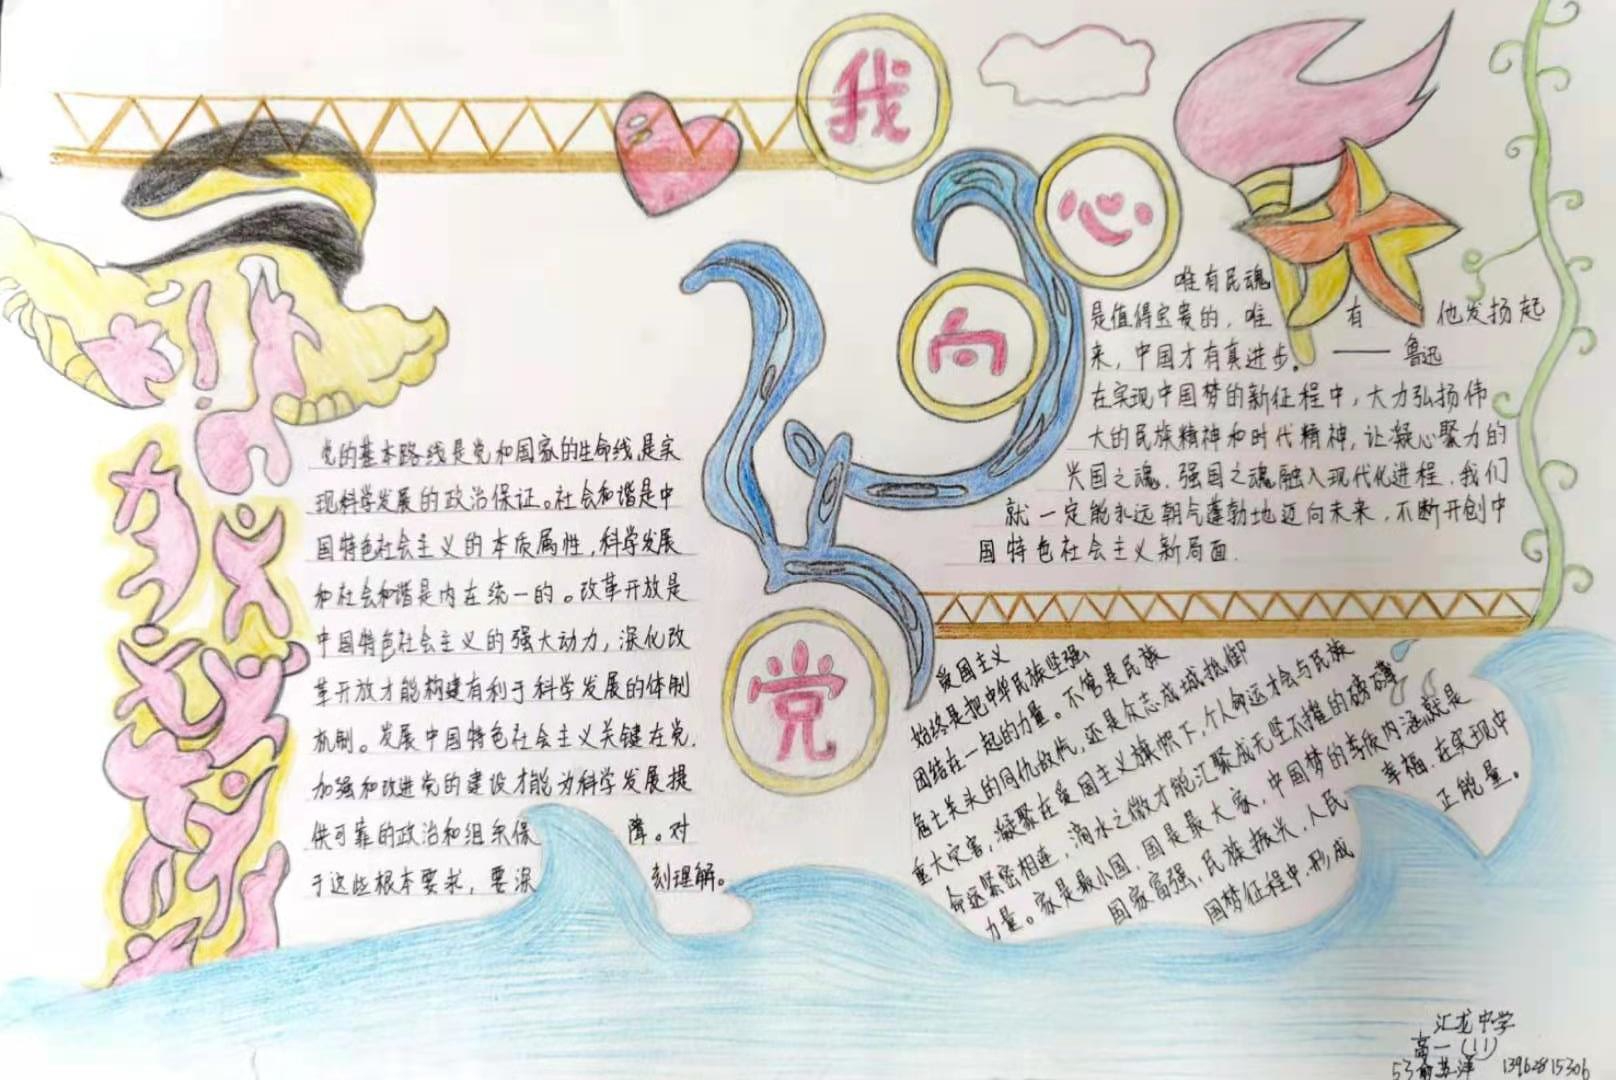 我
心
向
党
唯有民魂
是值得宝贵的，唯有他发扬起
来，中国才有真进步。——鲁迅
在实现中国梦的新征程中，大力弘扬伟
大的民族精神和时代精神，让凝心聚力的
兴国之魂、强国之魂融入现代化进程，我们
就一定能永远朝气蓬勃地迈向未来，不断开创中
国特色社会主义新局面.
党的基本路线是党和国家的生命线,是实
现科学发展的政治保证。社会和谐是中
国特色社会主义的本质属性，科学发展
和社会和谐是内在统一的。改革开放是
中国特色社会主义的强大动力，深化改
革开放才能构建有利于科学发展的体制
机制。发展中国特色社会主义关键在党.
加强和改进党的建设才能为科学发展提
供可靠的政治和组织保障。对
于这些根本要求，要深刻理解。
爱国主义
始终是把中华民族坚强
团结在一起的力量。不管是民族
危亡关头的同仇敌忾，还是众志成城抵御
重大灾害，凝聚在爱国主义旗帜下，个人命运才会与民族
命运紧密相连，滴水之微才能汇聚成无坚不摧的磅礴
力量。家是最小国，国是最大家，中国梦的本质内涵就是
国家富强、民族振兴、人民幸福.在实现中
国梦征程中.形成正能量。
汇龙中学
高一（11）
53 苏洋 13962815306